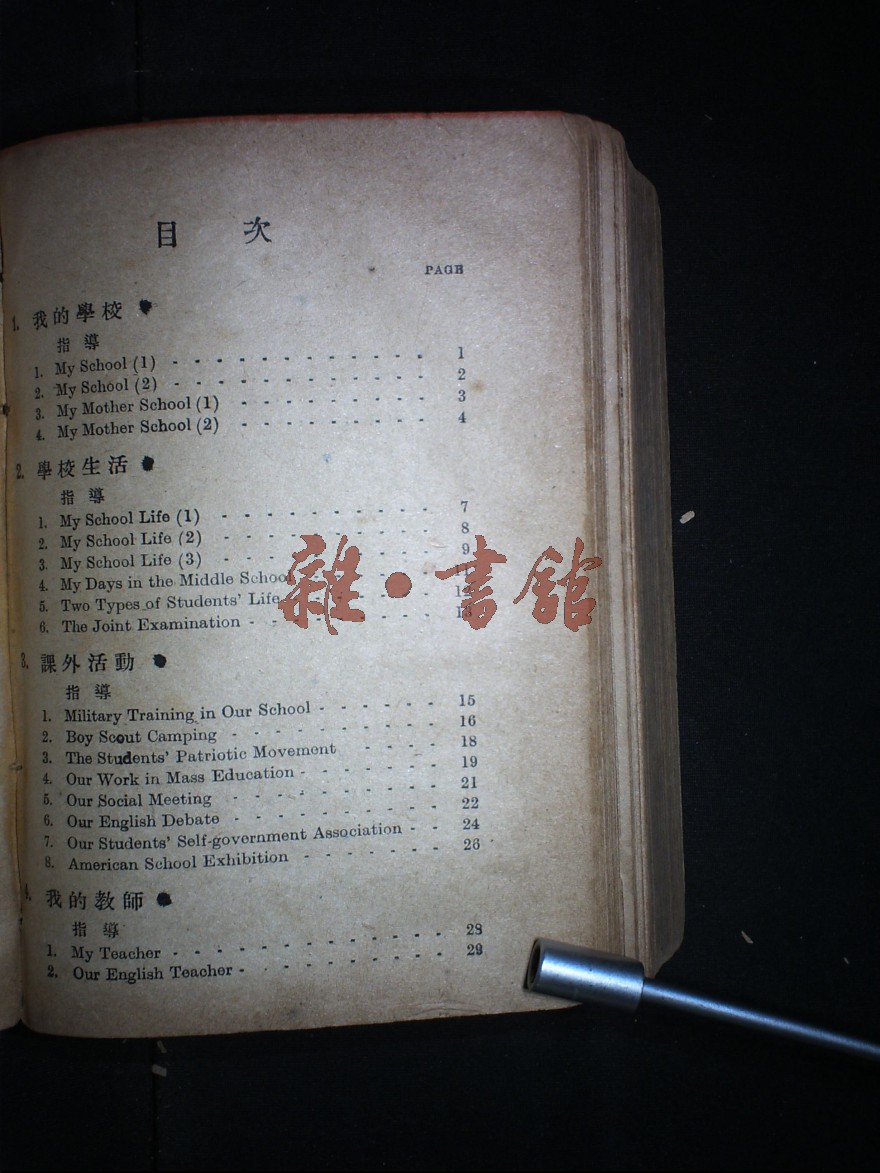 目 次
PAGE
1. 我的學校
指導
1. My School (1) - - - - - - - - - - - - 1
2. My School (2) - - - - - - - - - - - - 2
3. My Mother School (1) - - - - - - - - - 3
4. My Mother School (2) - - - - - - - - - 4
2. 學校生活
指導
1. My School Life (1) - - - - - - - - - - 7
2. My School Life (2) - - - - - - - - - - 8
3. My School Life (3) - - - - - - - - - - 9
4. My Days in the Middle School
5. Two Types of Students' Life
6. The Joint Examination - - - - - - - - - 13
雜•書館
3. 課外活動
指導
1. Military Training in Our School - - - - - - 15
2. Boy Scout Camping - - - - - - - - - 16
3. The Students' Patriotic Movement - - - - 18
4. Our Work in Mass Education - - - - - - - 19
5. Our Social Meeting - - - - - - - - - 21
6. Our English Debate - - - - - - - - - 22
7. Our Students' Self-government Association - - 24
8. American School Exhibition - - - - - - 26
4. 我的教師
指導
1. My Teacher - - - - - - - - - - - - 28
2. Our English Teacher - - - - - - - - - - 29